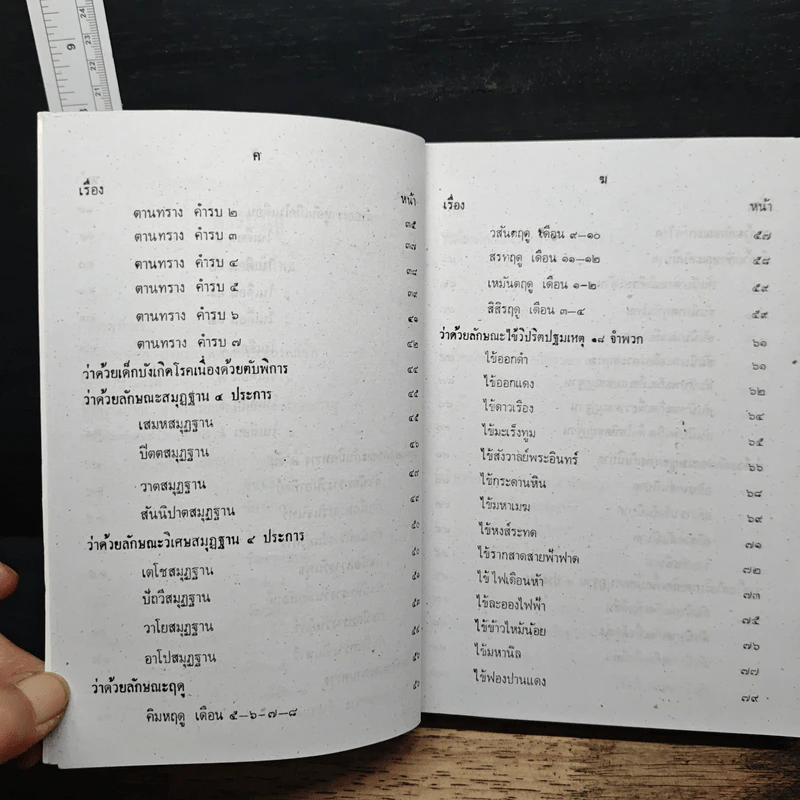 ค
เรื่อง หน้า
ตานทราง คำรบ ๒ ๓๕
ตานทราง คำรบ ๓ ๓๗
ตานทราง คำรบ ๔ ๓๘
ตานทราง คำรบ ๕ ๓๙
ตานทราง คำรบ ๖ ๔๑
ตานทราง คำรบ ๗ ๔๒
ว่าด้วยเด็กบังเกิดโรคเนื่องด้วยตับพิการ ๔๔
ว่าด้วยลักษณะสมุฏฐาน ๔ ประการ ๔๕
เสมหสมุฏฐาน ๔๕
ปิตตสมุฏฐาน ๔๖
วาตสมุฏฐาน
สันนิปาตสมุฏฐาน ๔๙
ว่าด้วยลักษณะวิเศษสมุฏฐาน ๔ ประการ ๕๐
เตโชสมุฏฐาน ๕๐
ปัถวีสมุฏฐาน
วาโยสมุฏฐาน
อาโปสมุฏฐาน
ว่าด้วยลักษณะฤดู
คิมหฤดู เดือน ๕-๖-๗-๘
ฆ
เรื่อง หน้า
วสันตฤดู เดือน ๙-๑๐ ๕๗
สรทฤดู เดือน ๑๑-๑๒ ๕๘
เหมันตฤดู เดือน ๑-๒ ๕๙
สิสิรฤดู เดือน ๓-๔ ๕๙
ว่าด้วยลักษณะไข้วิปริตปฐมเหตุ ๑๘ จำพวก ๖๑
ไข้ออกดำ ๖๑
ไข้ออกแดง ๖๒
ไข้ดาวเรือง ๖๔
ไข้มะเร็งทูม ๖๕
ไข้สังวาลย์พระอินทร์ ๖๖
ไข้กระดานหิน ๖๘
ไข้มหาเมฆ ๖๙
ไข้หงส์ระทด ๗๑
ไข้รากสาดสายฟ้าฟาด ๗๒
ไข้ไฟเดือนห้า ๗๓
ไข้ละอองไฟฟ้า ๗๕
ไข้ข้าวไหม้น้อย ๗๖
ไข้มหานิล ๗๗
ไข้ฟองปานแดง ๗๙
9
24
23
22
21